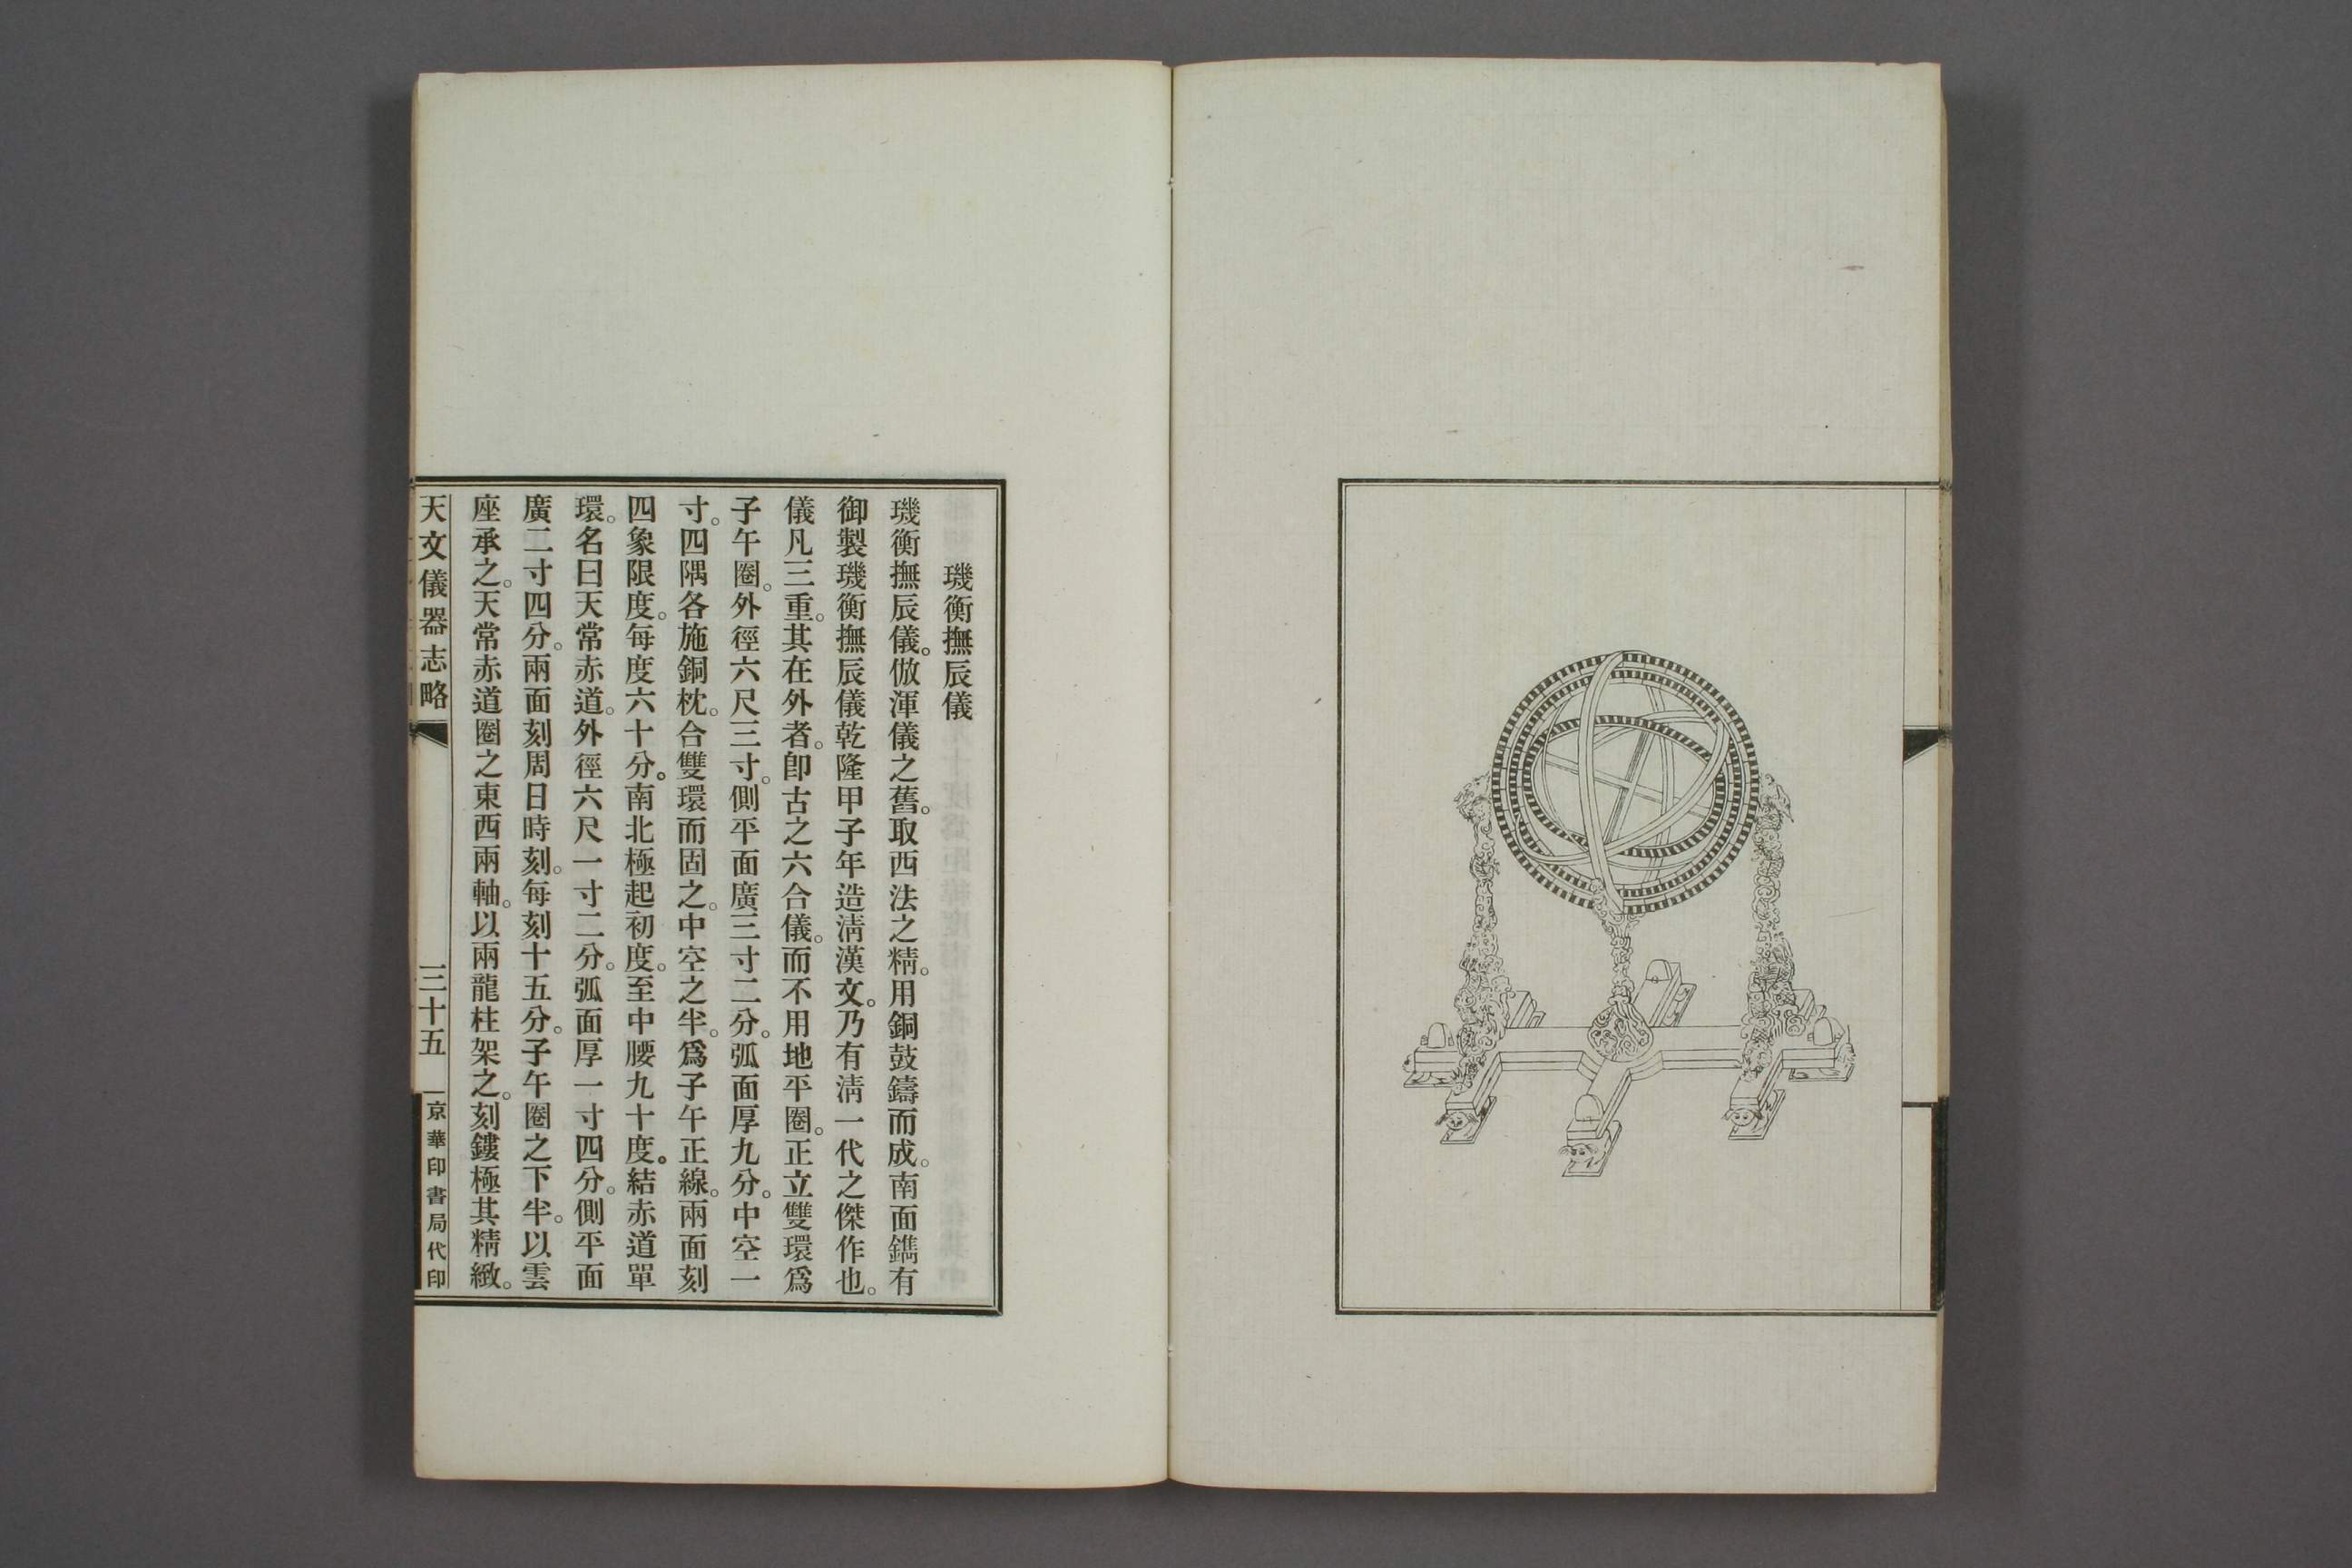 璣衡撫辰儀
璣衡撫辰儀。倣渾儀之舊。取西法之精。用銅鼓鑄而成。南面鐫有
御製璣衡撫辰儀乾隆甲子年造淸漢文。乃有淸一代之傑作也。
儀凡三重。其在外者。卽古之六合儀。而不用地平圈。正立雙環爲
子午圈。外徑六尺三寸。側平面廣三寸二分。弧面厚九分。中空一
寸。四隅各施銅枕。合雙環而固之。中空之半。爲子午正線。兩面刻
四象限度。每度六十分。南北極起初度。至中腰九十度。結赤道單
環。名曰天常赤道。外徑六尺一寸二分。弧面厚一寸四分。側平面
廣二寸四分。兩面刻周日時刻。每刻十五分。子午圈之下半。以雲
座承之。天常赤道圈之東西兩軸。以兩龍柱架之。刻鏤極其精緻。
天文儀器志略
三十五
京華印書局代印